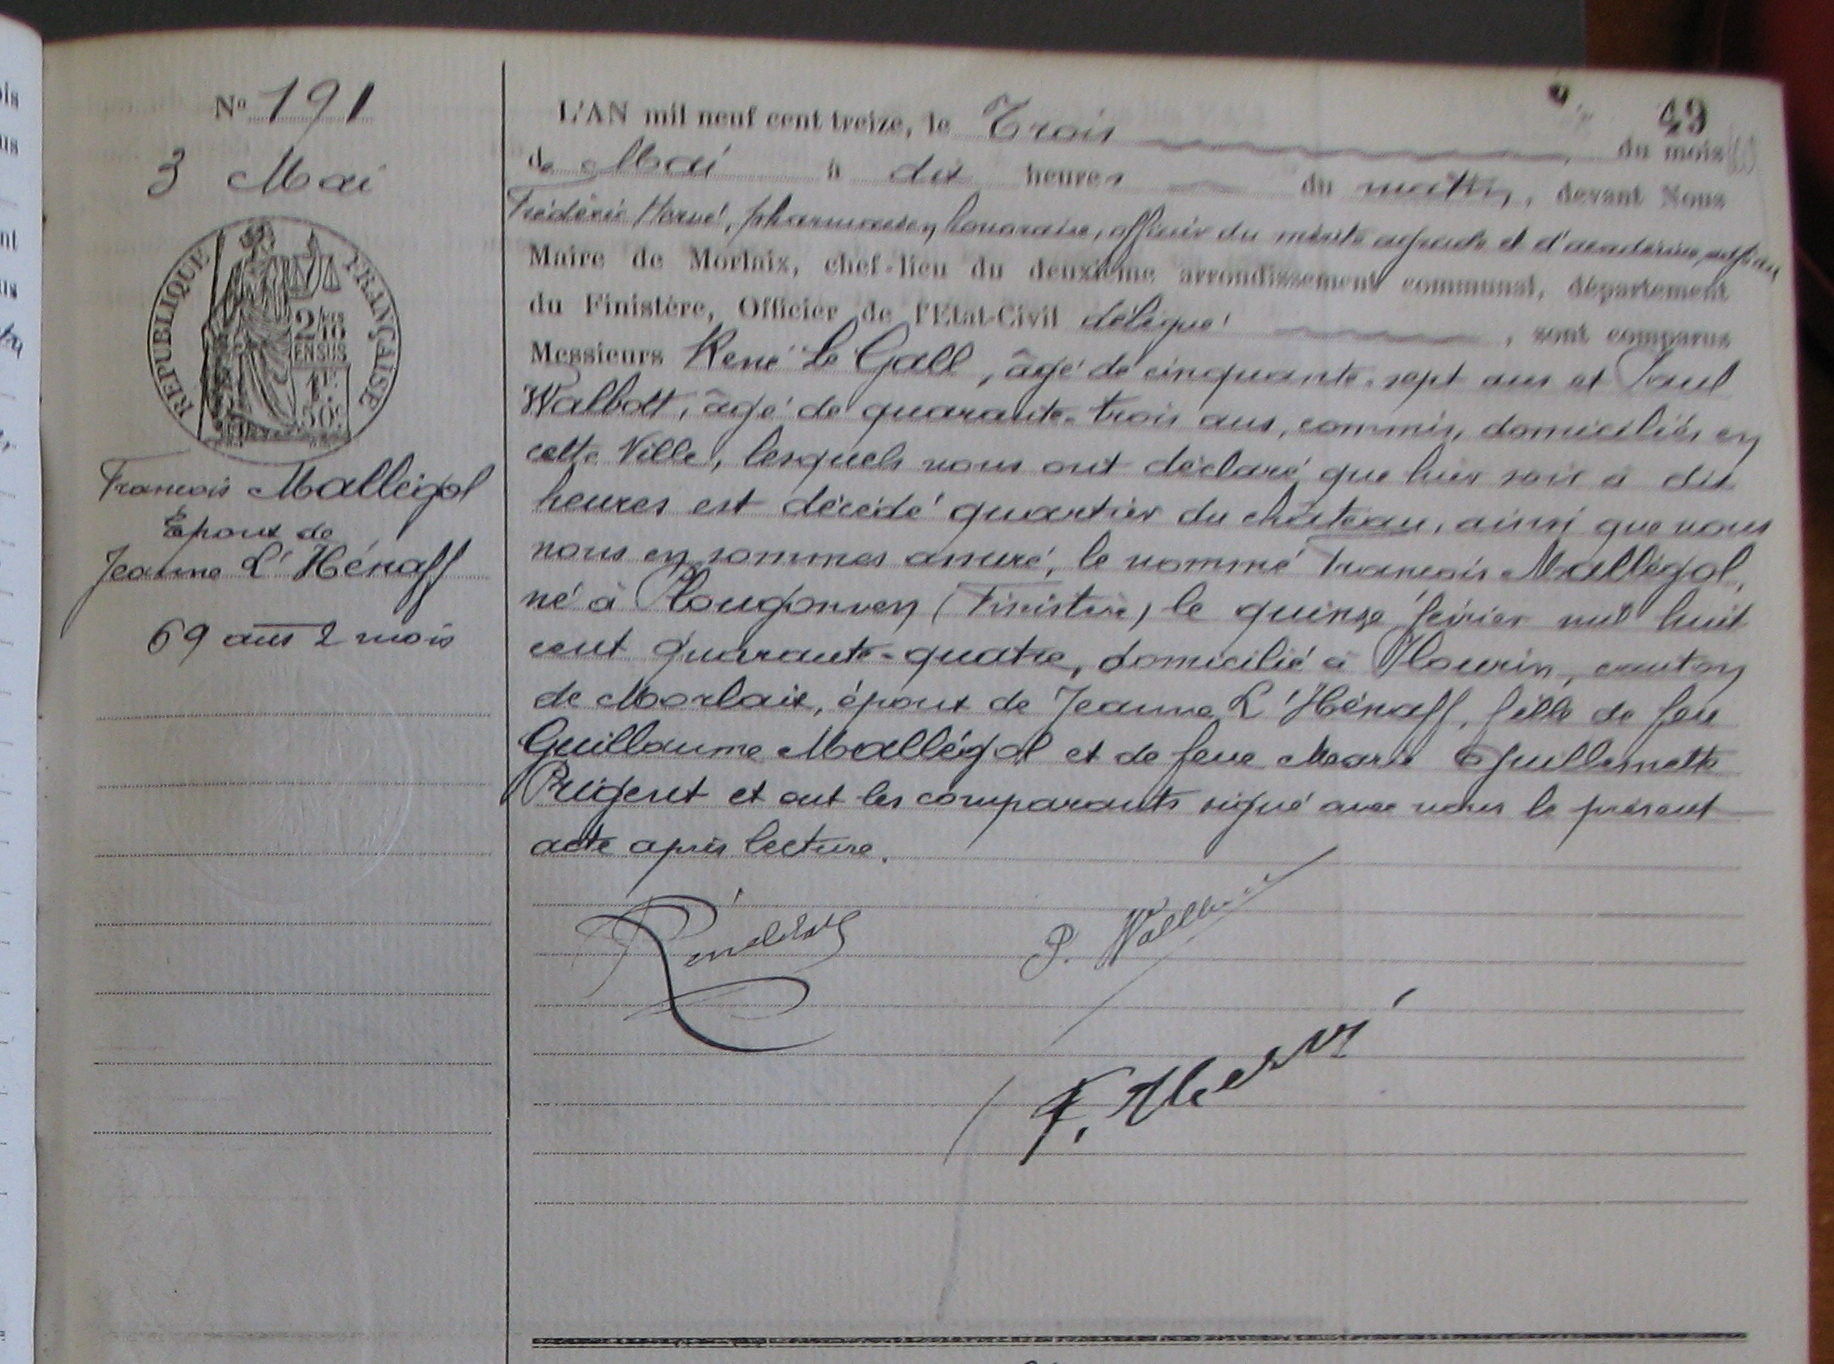 49
Nº 191
3 Mai
REPUBLIQUE FRANÇAISE
2/10
EN SUS
François Mallégol
Époux de
Jeanne L'Hénaff
69 ans 2 mois
L'AN mil neuf cent treize, le Trois du mois
de Mai à dix heures du matin, devant Nous
Frédéric Hervé, pharmacien honoraire, officier du mérite agricole et d'académie, adjoint
Maire de Morlaix, chef-lieu du deuxième arrondissement communal, département
du Finistère, Officier de l'Etat-Civil délégué, sont comparus
Messieurs René Le Gall, âgé de cinquante-sept ans et Paul
Walbott, âgé de quarante-trois ans, commis, domiciliés en
cette Ville, lesquels nous ont déclaré que hier soir à dix
heures est décédé quartier du château, ainsi que nous
nous en sommes assuré, le nommé François Mallégol,
né à Plougonven (Finistère) le quinze février mil huit
cent quarante-quatre, domicilié à Plourin, canton
de Morlaix, époux de Jeanne L'Hénaff, fille de feu
Guillaume Mallégol et de feue Marie Guillemette
Prigent et ont les comparants signé avec nous le présent
acte après lecture.
P. Walbott
F. Hervé